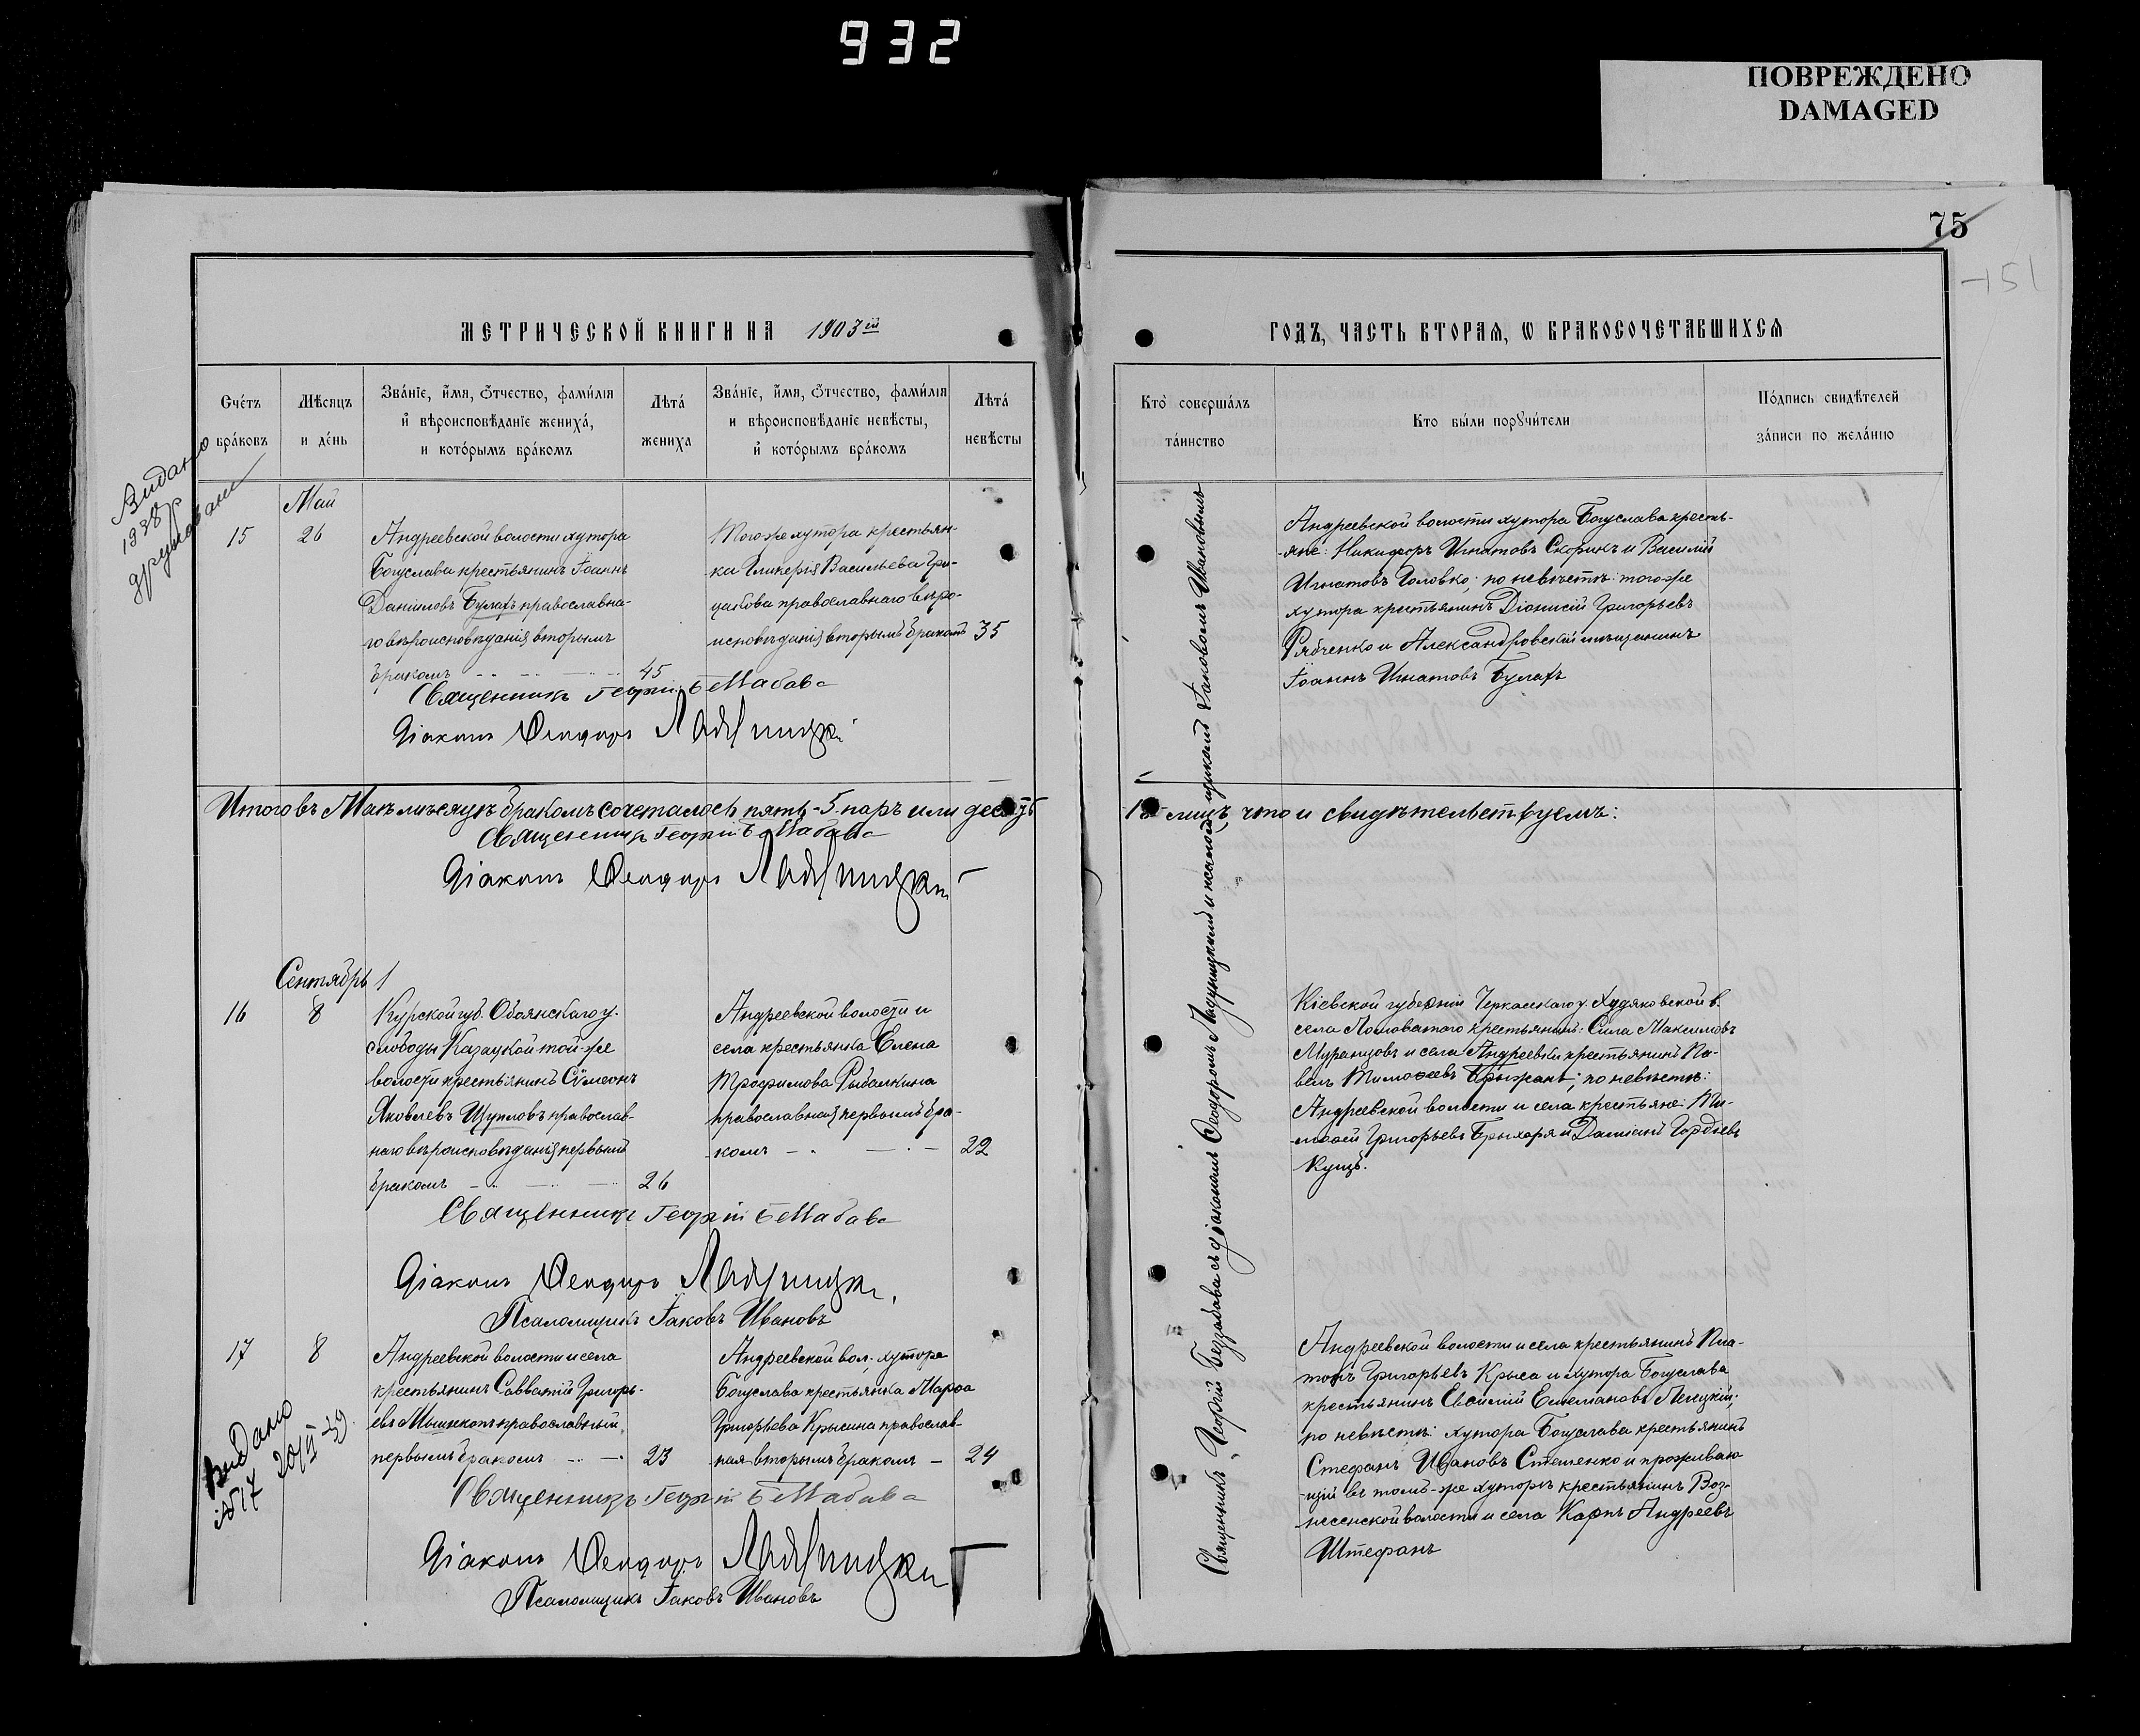 932
ПОВРЕЖДЕНО
DAMAGED
75
-151
МЕТРИЧЕСКОЙ КНИГИ НА 1903ій
ГОДЪ, ЧАСТЬ ВТОРАЯ, Ѡ БРАКОСОЧЕТАВШИХСЯ
Счётъ браковъ
Мѣсяцъ и день
Званіе, имя, ѻтчество, фамилія и вѣроисповѣданіе жениха, и которымъ бракомъ
Лѣта жениха
Званіе, имя, ѻтчество, фамилія и вѣроисповѣданіе невѣсты, и которымъ бракомъ
Лѣта невѣсты
Кто совершалъ таинство
Кто были порꙋчители
Подпись свидѣтелей записи по желанію
Видано
1938р
Май
15
26
Андреевской волости хутора
Богуслава крестьянинъ Іоаннъ
Даніиловъ Булахъ православна-
го вѣроисповѣданія вторымъ
бракомъ
45
Того же хутора крестьян-
ка Гликерія Васильева Гри-
цакова православнаго вѣро-
исповѣданія вторымъ бракомъ
35
Андреевской волости хутора Богуслава кресть-
яне: Никифоръ Игнатовъ Скорикъ и Василій
Игнатовъ Головко; по невѣстѣ: того-же
хутора крестьянинъ Діонисій Григорьевъ
Рябченко и Александровскій мѣщанинъ
Іоаннъ Игнатовъ Булахъ
Священникъ Георгій Беззабава
Діаконъ Ѳеодоръ Ладухицкій
Итого въ Маѣ мѣсяцѣ бракомъ сочеталось пять - 5 паръ или десять
10 лицъ что и свидѣтельствуемъ:
Священникъ Георгій Беззабава
Діаконъ Ѳеодоръ Ладухицкій
Сентябрь
16
8
Курской губ. Обоянскаго у.
слободы Казацкой той-же
волости крестьянинъ Сѵмеонъ
Яковлевъ Щупловъ православ-
наго вѣроисповѣданія первымъ
бракомъ
26
Андреевской волости и
села крестьянка Елена
Трофимова Рыбалкина
православная первымъ бра-
комъ
22
Кіевской губерніи Черкасскаго у. Худяковской в.
села Ломоватого крестьянинъ: Сила Максимовъ
Муранцовъ и села Андреевки крестьянинъ Па-
велъ Тимоѳеевъ Брыжанъ; по невѣстѣ:
Андреевской волости и села крестьяне: Ти-
моѳей Григорьевъ Брыхаря и Даміанъ Гордіевъ
Куцъ.
Священникъ Георгій Беззабава
Діаконъ Ѳеодоръ Ладухицкій
Псаломщикъ Іаковъ Ивановъ
17
8
Андреевской волости и села
крестьянинъ Савватій Григорь-
евъ православный,
первымъ бракомъ
23
Андреевской вол. хутора
Богуслава крестьянка Марѳа
Григорьева Крысина православ-
ная вторымъ бракомъ
24
Андреевской волости и села крестьянинъ Пла-
тонъ Григорьевъ Крыса и хутора Богуслава
крестьянинъ Евѳимій Емеліановъ
по невѣстѣ: хутора Богуслава крестьянинъ
Стефанъ Ивановъ Стешенко и прожива-
щій въ томъ-же хуторѣ крестьянинъ Воз-
несенской волости и села Карпъ Андреевъ
Штефанъ
Видано
№517
Священникъ Георгій Беззабава
Діаконъ Ѳеодоръ Ладухицкій
Псаломщикъ Іаковъ Ивановъ
Священникъ Георгій Беззабава съ діакономъ Ѳеодоромъ Ладухицкимъ и псаломщикомъ Іаковомъ Ивановымъ